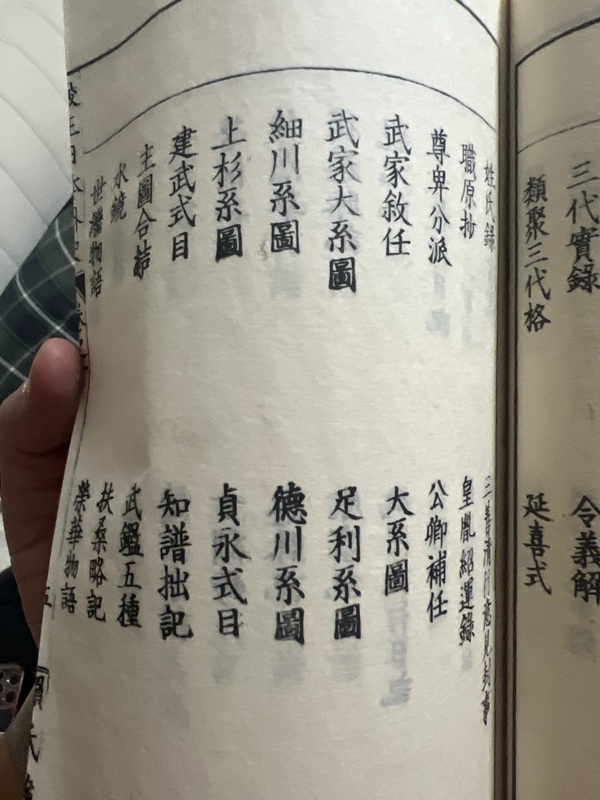 三代實錄 令義解
類聚三代格 延喜式
姓氏錄 三善清行意見封事
職原抄 皇胤紹運錄
尊卑分派 公卿補任
武家敘任 大系圖
武家大系圖 足利系圖
細川系圖 德川系圖
上杉系圖 貞永式目
建武式目 知譜拙記
主圖合結 武鑑五種
水鏡 扶桑略記
世繼物語 榮華物語
校正日本外史 五